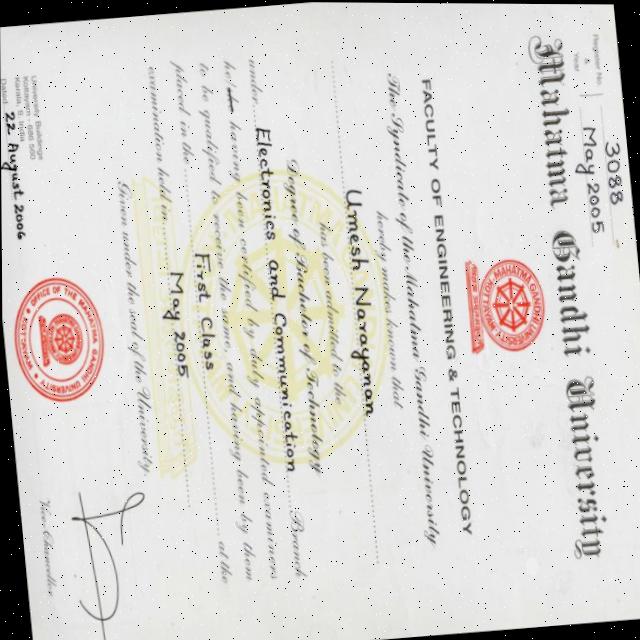 Register No. 3088
& Year May 2005
Mahatma Gandhi University
FACULTY OF ENGINEERING & TECHNOLOGY
The Syndicate of the Mahatma Gandhi University
hereby makes known that
Umesh Narayanan
has been admitted to the
Degree of Bachelor of Technology
under Electronics and Communication Branch
he/she having been certified by duly appointed examiners
to be qualified to receive the same, and having been by them
placed in the First Class at the
examination held in May 2005
Given under the seal of the University
University Buildings
Kottayam
Kerala, S. India
Dated 22 August 2006
OFFICE OF THE MAHATMA GANDHI UNIVERSITY
KOTTAYAM
Vice-Chancellor